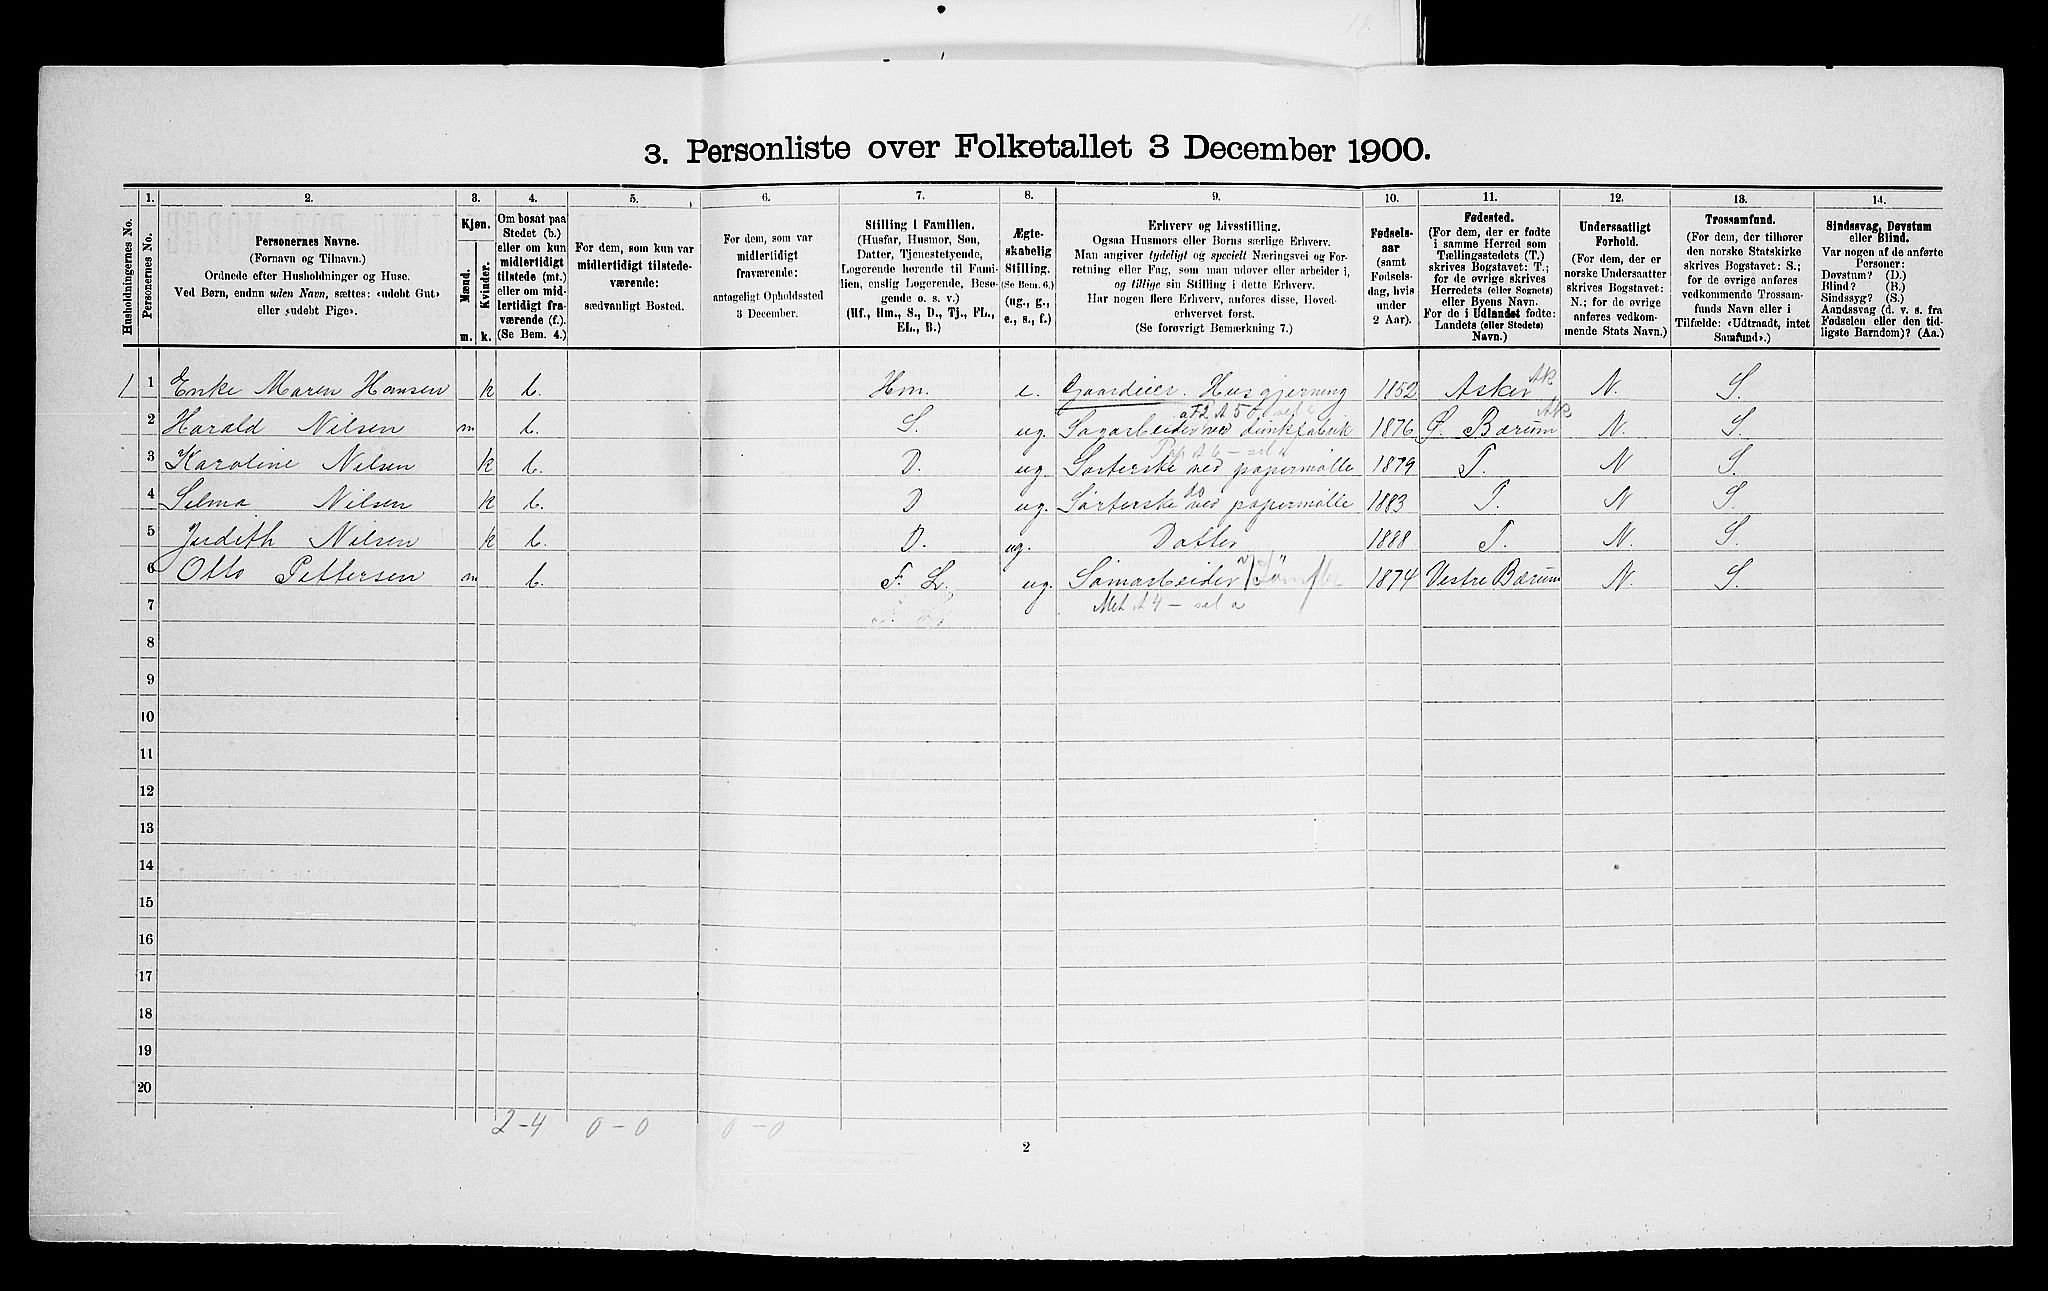 3. Personliste over Folketallet 3 December 1900.
Husholdningernes No.
1.
Personernes No.
2.
Personernes Navne.
(Fornavn og Tilnavn.)
Ordnede efter Husholdninger og Huse.
Ved Børn, endnu uden Navn, sættes: «udøbt Gut»
eller «udøbt Pige».
3.
Kjøn.
Mænd.
Kvinder.
m. k.
4.
Om bosat paa
Stedet (b.)
eller om kun
midlertidigt
tilstede (mt.)
eller om mid-
lertidigt fra-
værende (f.).
(Se Bem. 4.)
5.
For dem, som kun var
midlertidigt tilstede-
værende:
sædvanligt Bosted.
6.
For dem, som var
midlertidigt
fraværende:
antageligt Opholdssted
3 December.
7.
Stilling i Familien.
(Husfar, Husmor, Søn,
Datter, Tjenestetyende,
Logerende hørende til Fami-
lien, enslig Logerende, Besø-
gende o. s. v.)
(Hf., Hm., S., D., Tj., FL.,
EL., B.)
8.
Ægte-
skabelig
Stilling.
(Se Bem. 6.)
(ug., g.,
e., s., f.)
9.
Erhverv og Livsstilling.
Ogsaa Husmors eller Børns særlige Erhverv.
Man angiver tydeligt og specielt Næringsvei og For-
retning eller Fag, som man udøver eller arbeider i,
og tillige sin Stilling i dette Erhverv.
Har nogen flere Erhverv, anføres disse, Hoved-
erhvervet først.
(Se forøvrigt Bemærkning 7.)
10.
Fødsels-
aar
(samt
Fødsels-
dag, hvis
under
2 Aar).
11.
Fødested.
(For dem, der er fødte
i samme Herred som
Tællingsstedets (T.)
skrives Bogstavet: T.;
for de øvrige skrives
Herredets (eller Sognets)
eller Byens Navn.
For de i Udlandet fødte:
Landets (eller Stedets)
Navn.)
12.
Undersaatligt
Forhold.
(For dem, der er
norske Undersaatter
skrives Bogstavet:
N.; for de øvrige
anføres vedkom-
mende Stats Navn.)
13.
Trossamfund.
(For dem, der tilhører
den norske Statskirke
skrives Bogstavet: S.;
for de øvrige anføres
vedkommende Trossam-
funds Navn eller i
Tilfælde: «Udtraadt, intet
Samfund».)
14.
Sindssvag, Døvstum
eller Blind.
Var nogen af de anførte
Personer:
Døvstum? (D.)
Blind? (B.)
Sindssyg? (S.)
Aandssvag (d. v. s. fra
Fødselen eller den tid-
ligste Barndom)? (Aa.)
1 1 Enke Maren Hansen k b. Hm. e. Gaardeier. Husgjerning 1852 Asker Ak N. S.
2 Harald Nilsen m b. S. ug. Sagarbeider ved dunkfabrik 1876 Ø. Bærum Ak N. S.
3 Karoline Nilsen k b. D. ug. Sorterske ved papermølle 1879 T. N S.
4 Selma Nilsen k b. D ug. Sorterske ved papermølle 1883 T. N S.
5 Judith Nilsen k b. D. ug. Datter 1888 T. N. S.
6 Otto Pettersen m b. F. L. ug. Sömarbeider 1874 Vestre Bærum N. S.
7 Met A 4 – sel a
8
9
10
11
12
13
14
15
16
17
18
19
20
2–4 0–0 0–0
2